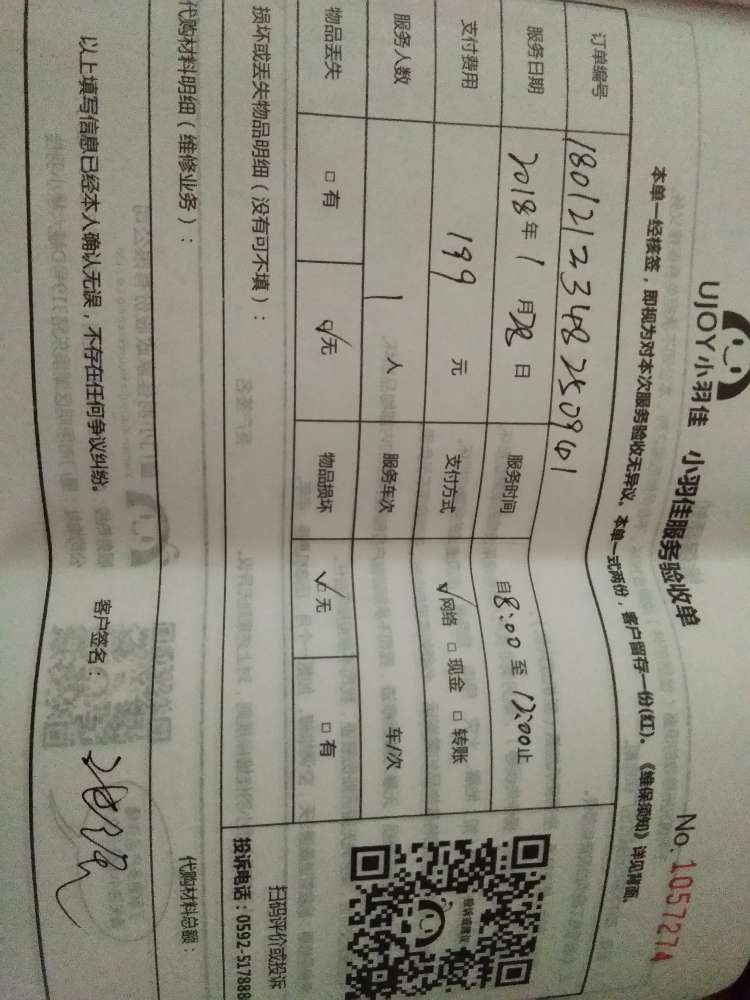 UJOY小羽佳 小羽佳服务验收单 No. 1057274
本单一经核签，即视为对本次服务验收无异议。本单一式两份，客户留存一份(红)。《维保须知》详见背面。
订单编号 1801212348250941
服务日期 2018年 1 月 日 服务时间 自8:00 至 12:00止
支付费用 199 元 支付方式 ☑网络 □现金 □转账
服务人数 1 人 服务车次 车/次
物品丢失 □有 ☑无 物品损坏 ☑无 □有
损坏或丢失物品明细（没有可不填）：
投诉或建议
扫码评价或投诉
投诉电话：0592-517888
代购材料明细（维修业务）： 代购材料总额：
以上填写信息已经本人确认无误，不存在任何争议纠纷。 客户签名：